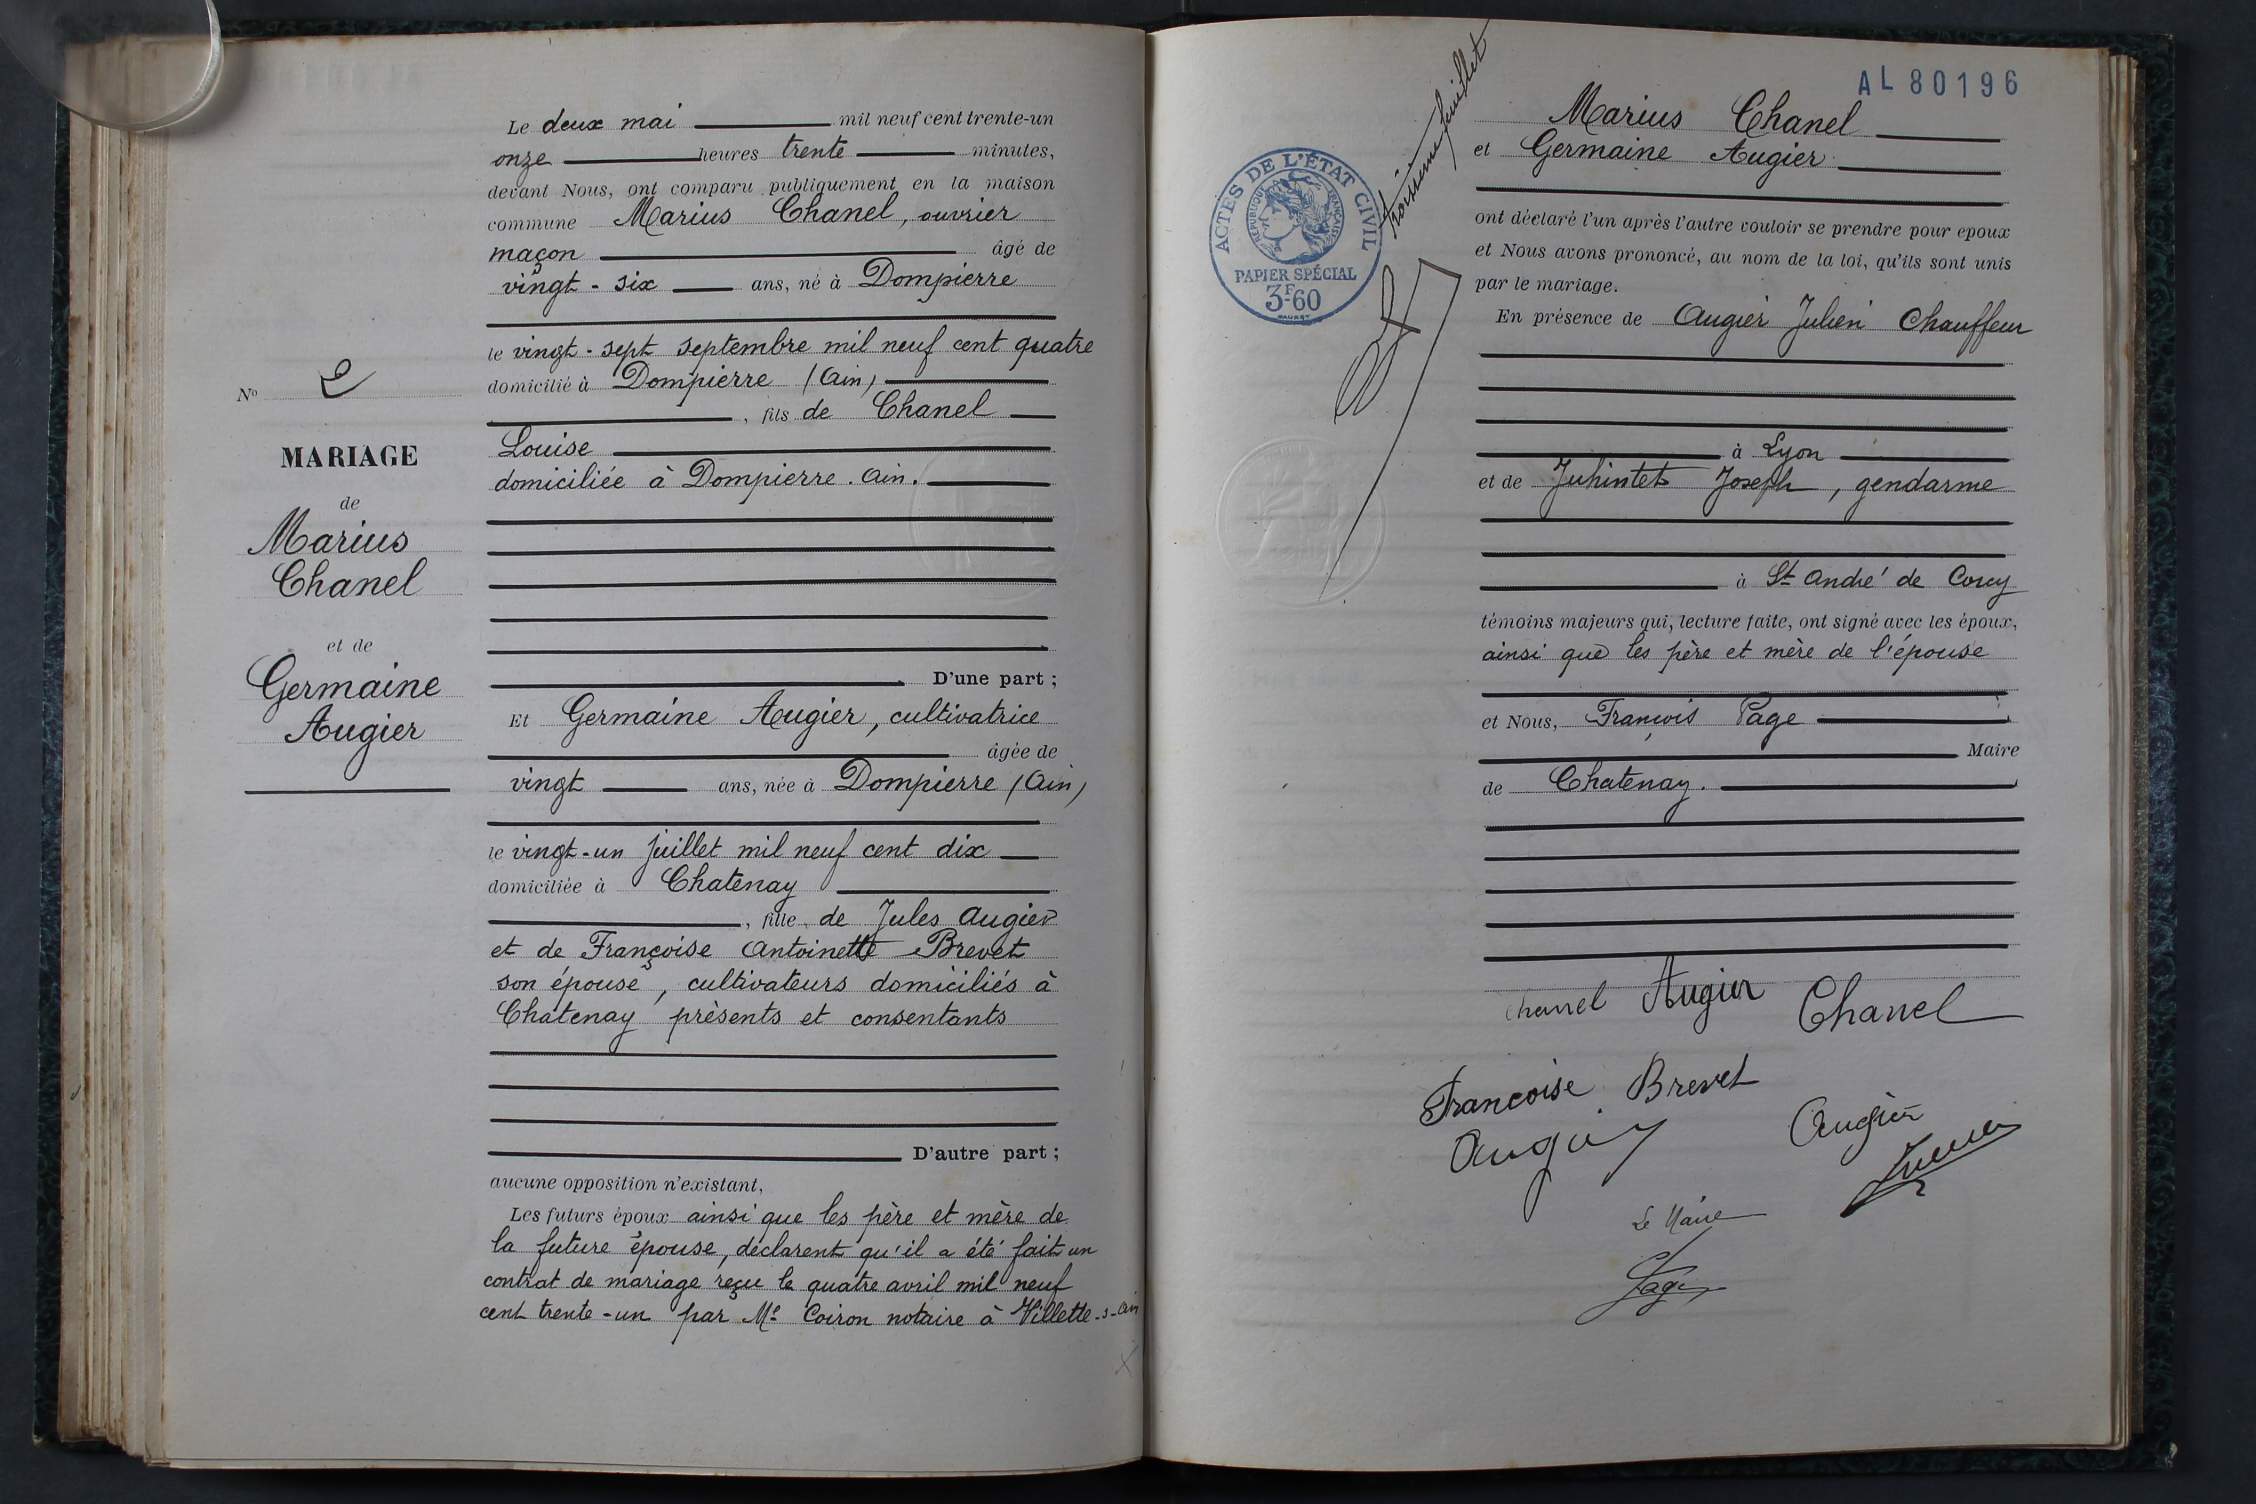 Le deux mai mil neuf cent trente-un
onze heures trente minutes,
devant Nous, ont comparu publiquement en la maison
commune Marius Chanel, ouvrier
maçon âgé de
vingt-six ans, né à Dompierre
le vingt-sept septembre mil neuf cent quatre
domicilié à Dompierre (Ain)
, fils de Chanel
Louise
domiciliée à Dompierre. Ain.
D'une part ;
Et Germaine Augier, cultivatrice
âgée de
vingt ans, née à Dompierre (Ain)
le vingt-un juillet mil neuf cent dix
domiciliée à Chatenay
, fille de Jules Augier
et de Françoise Antoinette Brevet
son épouse, cultivateurs domiciliés à
Chatenay présents et consentants
D'autre part ;
aucune opposition n'existant,
Les futurs époux ainsi que les père et mère de
la future épouse, déclarent qu'il a été fait un
contrat de mariage reçu le quatre avril mil neuf
cent trente-un par Me Coiron notaire à Villette-s-Ain
No 2
MARIAGE
de
Marius
Chanel
et de
Germaine
Augier
AL 80196
troisième feuillet
ACTES DE L'ÉTAT CIVIL
RÉPUBLIQUE FRANÇAISE
PAPIER SPÉCIAL
3F60
Marius Chanel
et Germaine Augier
ont déclaré l'un après l'autre vouloir se prendre pour époux
et Nous avons prononcé, au nom de la loi, qu'ils sont unis
par le mariage.
En présence de Augier Julien Chauffeur
à Lyon
et de Joseph, gendarme
à St André de Corcy
témoins majeurs qui, lecture faite, ont signé avec les époux,
ainsi que les père et mère de l'épouse
et Nous, François Page
Maire
de Chatenay.
Chanel Augier Chanel
Françoise Brevet
Augier
Augier
Le Maire
Page